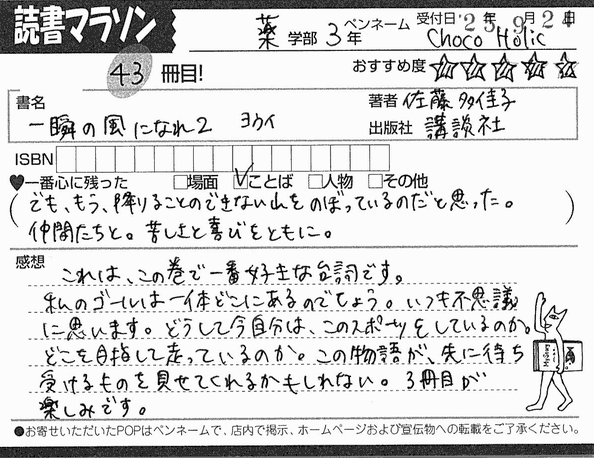 読書マラソン
薬 学部 3 年 ペンネーム Choco Holic 受付日 '25年 9月 24日
43 冊目!
おすすめ度 ☆☆☆☆☆
書名 一瞬の風になれ2 ヨウイ
著者 佐藤 多佳子
出版社 講談社
ISBN
♥一番心に残った □場面 ☑ことば □人物 □その他
(でも、もう、降りることのできない山をのぼっているのだと思った。
仲間たちと。苦しみと喜びをともに。)
感想
これは、この巻で一番好きな台詞です。
私のゴールは一体どこにあるのでしょう。いつも不思議
に思います。どうして今自分は、このスポーツをしているのか。
どこを目指して走っているのか。この物語が、先に待ち
受けるものを見せてくれるかもしれない。3冊目が
楽しみです。
●お寄せいただいたPOPはペンネームで、店内で掲示、ホームページおよび宣伝物への転載をご了承ください。